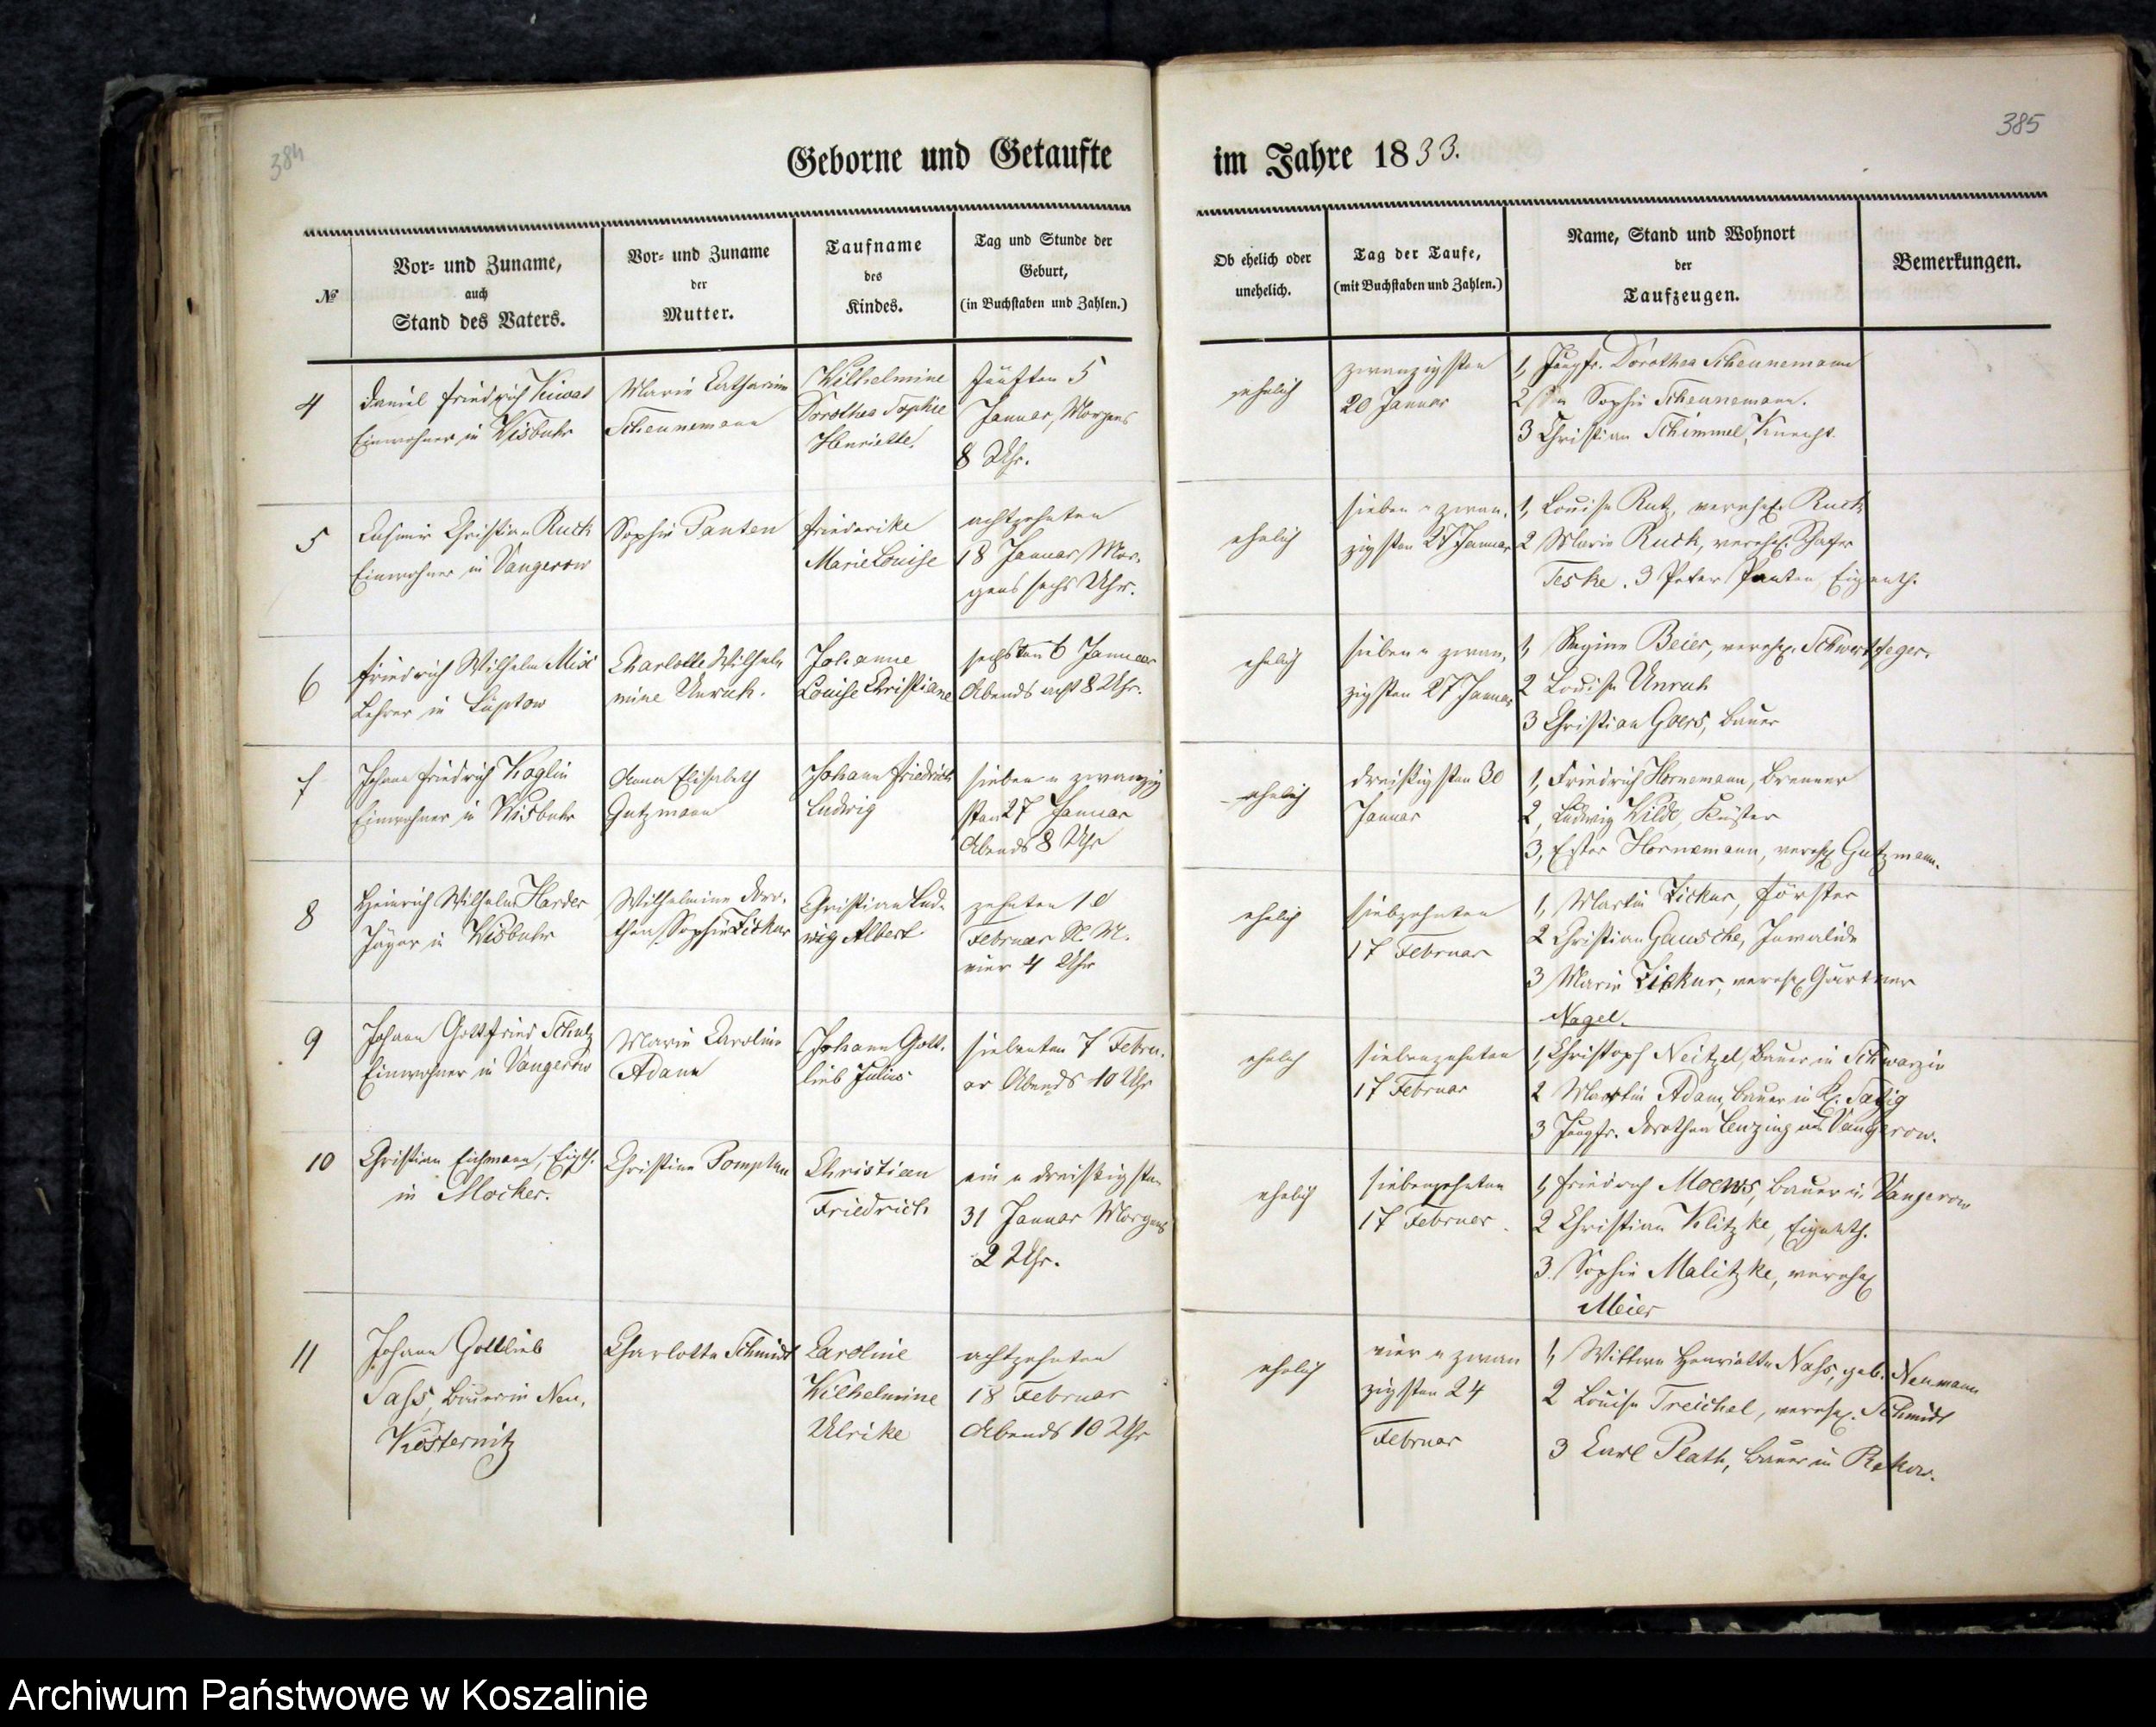 384
385
Geborne und Getaufte
im Jahre 1833.
№
Vor- und Zuname,
auch
Stand des Vaters.
Vor- und Zuname
der
Mutter.
Taufname
des
Kindes.
Tag und Stunde der
Geburt,
(in Buchstaben und Zahlen.)
Ob ehelich oder
unehelich.
Tag der Taufe,
(mit Buchstaben und Zahlen.)
Name, Stand und Wohnort
der
Taufzeugen.
Bemerkungen.
4
Daniel Friedrich
Einwohner in Wisbuhr
Marie Catharine
Scheunemann
Wilhelmine
Dorothea Sophie
Henriette.
fünften 5
Januar, Morgens
8 Uhr.
ehelich
zwanzigsten
20 Januar
1, Jungfr. Dorothea Scheunemann
2 Sophie Scheunemann.
3 Christian Schimmel, Knecht.
5
Casimir Christian Ruck
Einwohner in Vangerow
Sophie Panten
Friederike
Marie Louise
achtzehnten
18 Januar, Mor-
gens sechs Uhr.
ehelich
sieben u zwan-
zigsten 27 Januar
1, Louise Rutz, verehel. Ruck
2 Marie Ruck, verehel.
Teske. 3 Peter Panten, Eigenth.
6
Friedrich Wilhelm
Lehrer in Lüptow
Charlotte Wilhel-
mine Unruh.
Johanne
Louise Christiane
sechsten 6 Januar
Abends acht 8 Uhr.
ehelich
sieben u zwan-
zigsten 27 Januar
1, Regine Beier, verehel. Schwertfeger.
2 Louise Unruh
3 Christian Goers, Bauer
7
Johann Friedrich Koglin
Einwohner in Wisbuhr
Anna Elisabeth
Gutzmann
Johann Friedrich
Ludwig
sieben u zwanzig
sten 27 Januar
Abends 8 Uhr
ehelich
dreißigsten 30
Januar
1, Friedrich Hornemann, Brenner
2, Ludwig Wilde, Küster
3, Ester Hornemann, verehel. Gutzmann.
8
Heinrich Wilhelm Harder
Jäger in Wisbuhr
Wilhelmine Doro-
thea Sophie
Christian Lud-
wig Albert
zehnten 10
Februar N. M.
vier 4 Uhr
ehelich
siebzehnten
17 Februar
1, Martin Förster
2 Christian Gauscke, Invalide
3 Marie verehel. Gärtner
Nagel.
9
Johann Gottfried Schulz
Einwohner in Vangerow
Marie Caroline
Adam
Johann Gott-
lieb Julius
siebenten 7 Febru-
ar Abends 10 Uhr
ehelich
siebenzehnten
17 Februar
1, Christoph Neitzel, Bauer in Schwarzin
2 Martin Adam, Bauer in Kl. Satzig
3 Jungfr. Dorothea Benzing aus Vangerow.
10
Christian Eichmann, Eigth.
in Mocker.
Christine Pomplun
Christian
Friedrich
ein u dreissigsten
31 Januar Morgens
2 Uhr.
ehelich
siebenzehnten
17 Februar
1, Friedrich Moews, Bauer in Vangerow
2 Christian Klitzke, Eigenth.
3. Sophie Malitzke, verehel.
Meier
11
Johann Gottlieb
Tass, Bauer in Neu-
Kösternitz
Charlotte Schmidt
Caroline
Wilhelmine
Ulrike
achtzehnten
18 Februar
Abends 10 Uhr
ehelich
vier u zwan
zigsten 24
Februar
1, Wittwe Henriette Nass, geb. Neumann
2 Louise Treichel, verehel. Schmidt
3 Carl Plath, Bauer in Rekow.
Archiwum Państwowe w Koszalinie